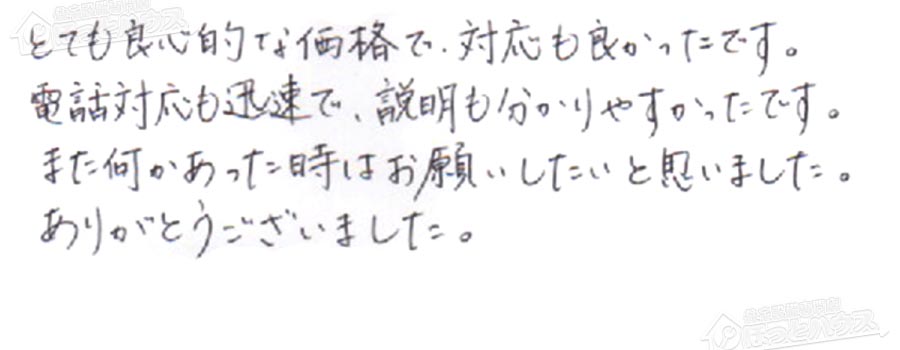 とても良心的な価格で、対応も良かったです。
電話対応も迅速で、説明も分かりやすかったです。
また何かあった時はお願いしたいと思いました。
ありがとうございました。
ほっとハウス